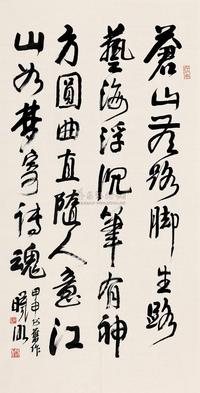 苍山苍路脚生路
藝海浮沉筆有神
方圓曲直隨人意江
山如夢寄詩魂
甲申